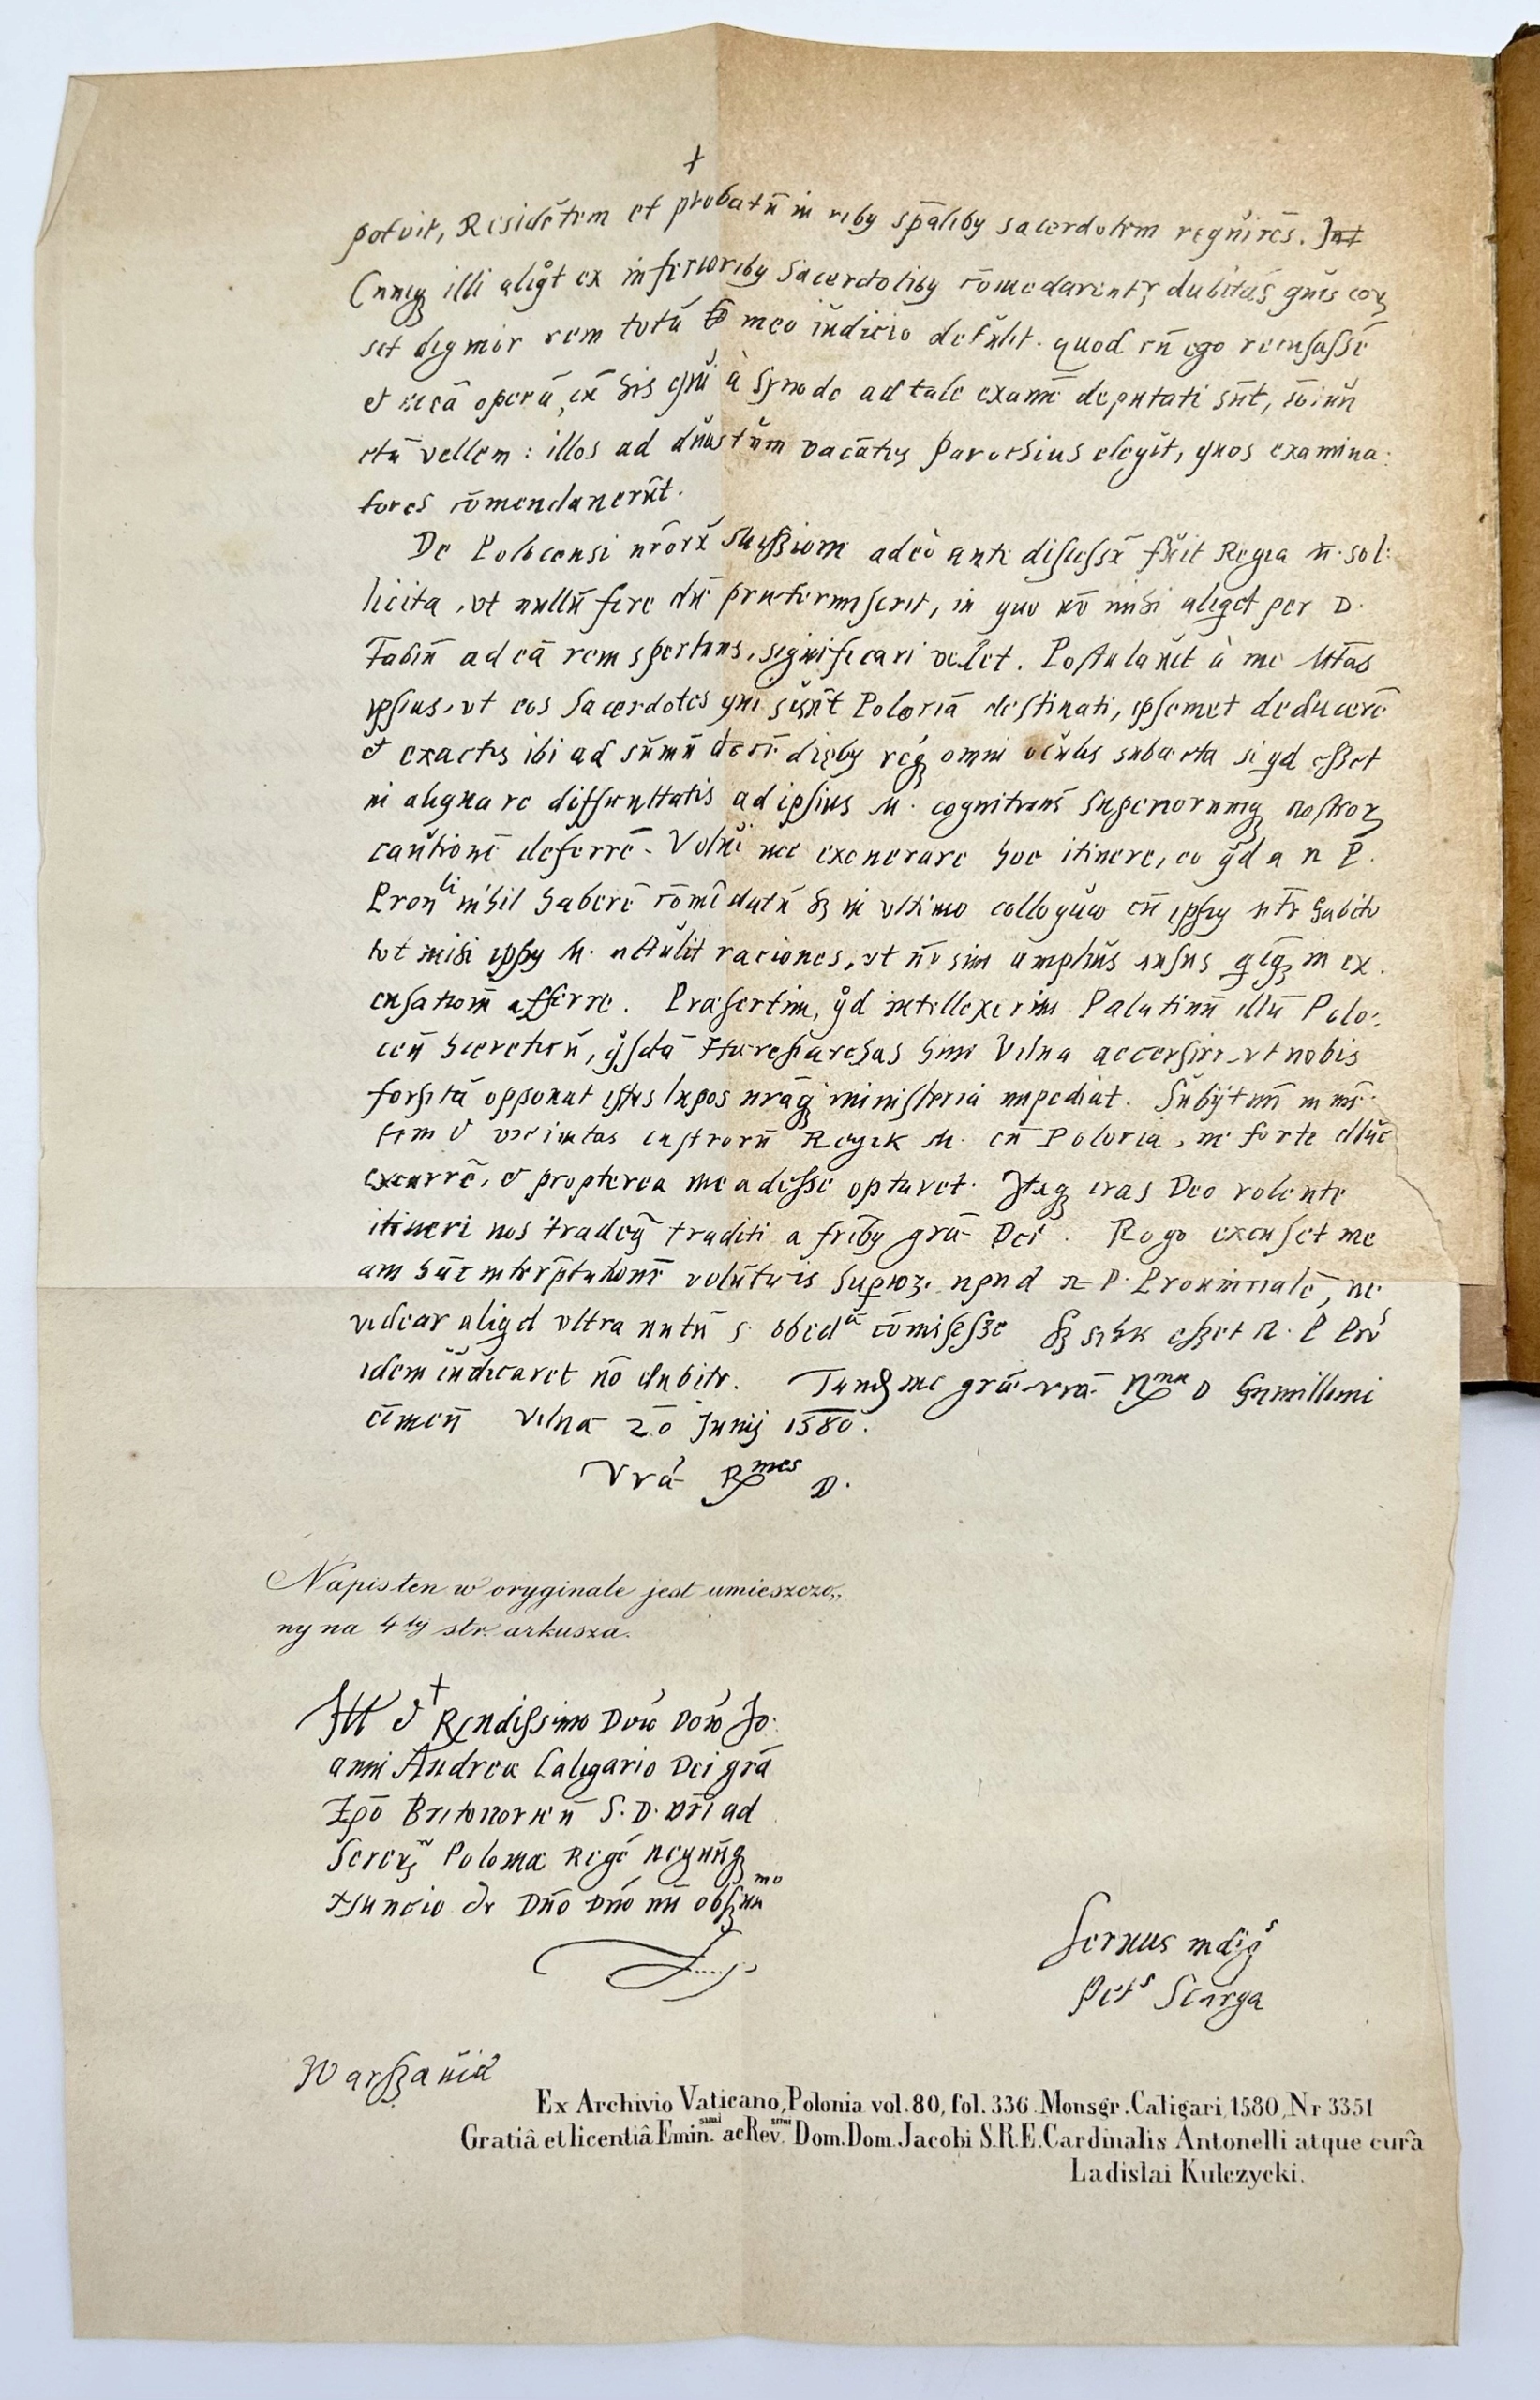 †
potuit, Residētem et probatū in reby spāliby sacerdotem requirēs.
Cumq illi aliqt ex inferioriby Sacerdotiby cōmēdarentr dubitās quis eor
sit dignior rem totā meo iudicio detulit. quod cū ego recusassē
et meā operā, cū his qui à synodo ad tale examē deputati sūt, cōiun
ctā vellem: illos ad duas tūm vacātes Parochias elegit, quos examina-
tores cōmendauerūt.
De Polocensi nrōrū Missione adeò ante discessū fuit Regia M. sol-
licita, vt nullū fere diē prætermiserit, in quo nō mihi aliqd per D.
Fabiū ad eā rem spectans, significari velet. Postulauit à me Mtas
ipsius, vt eos Sacerdotes qui sunt Polociā destinati, ipsemet deducerē
et exactis ibi ad sūmū dieby req omni oculis subiecta si qd esset
in aliqua re difficultatis ad ipsius M. cognitionē Superiorumq nostror
cautionē deferrē. Volui me exonerare hoc itinere, eo qd a R P.
Prouli nihil haberē cōmēdatū sz in vltimo colloquio cū ipsius Mte habito
tot mihi ipsius M. attulit raciones, vt nō sim amplius ausus qcq in ex-
cusationē afferre. Præsertim, qd intellexerim Palatinū illū Polo-
cen hæreticū, qsdā Hæresiarchas hinc Vilna accersire vt nobis
forsitā opponat istos lupos nraq ministeria impediat.
sim et vicinitas castrorū Regiæ M. cū Polocia, ne forte illuc
excurrē, et propterea me adesse optaret. Itaq cras Deo volente
itineri nos trademus traditi a friby grā Dei. Rogo excuset me
am hāc interp̄tationē volūtatis Superior. apud R P. Prouintialē, ne
videar aliqd vltra nutū s. obedæ cōmisisse sz si hic esset R. P Prō
idem iudicaret nō dubito. Tandē me grā vrā Rmæ D humillime
cōmen Vilnæ 20 Junij 1580.
Vrā Rmæs D.
Napis ten w oryginale jest umieszczo„
ny na 4tej str. arkusza.
Ill et † Rndissimo Dnō Dnō Jo.
anni Andreæ Caligario Dei grā
Epō Britonorien S. D. Nri ad
Seren Poloniæ Regē Regnūq
Nuncio et Dnō Dnō mī obsermo
Seruus indigs
Pets Scarga
Warszauiā
Ex Archivio Vaticano, Polonia vol. 80, fol. 336. Monsgr. Caligari, 1580, Nr 3351
Gratiâ et licentiâ Emin.smi ac Rev.smi Dom. Dom. Jacobi S.R.E. Cardinalis Antonelli atque curâ
Ladislai Kulczycki.